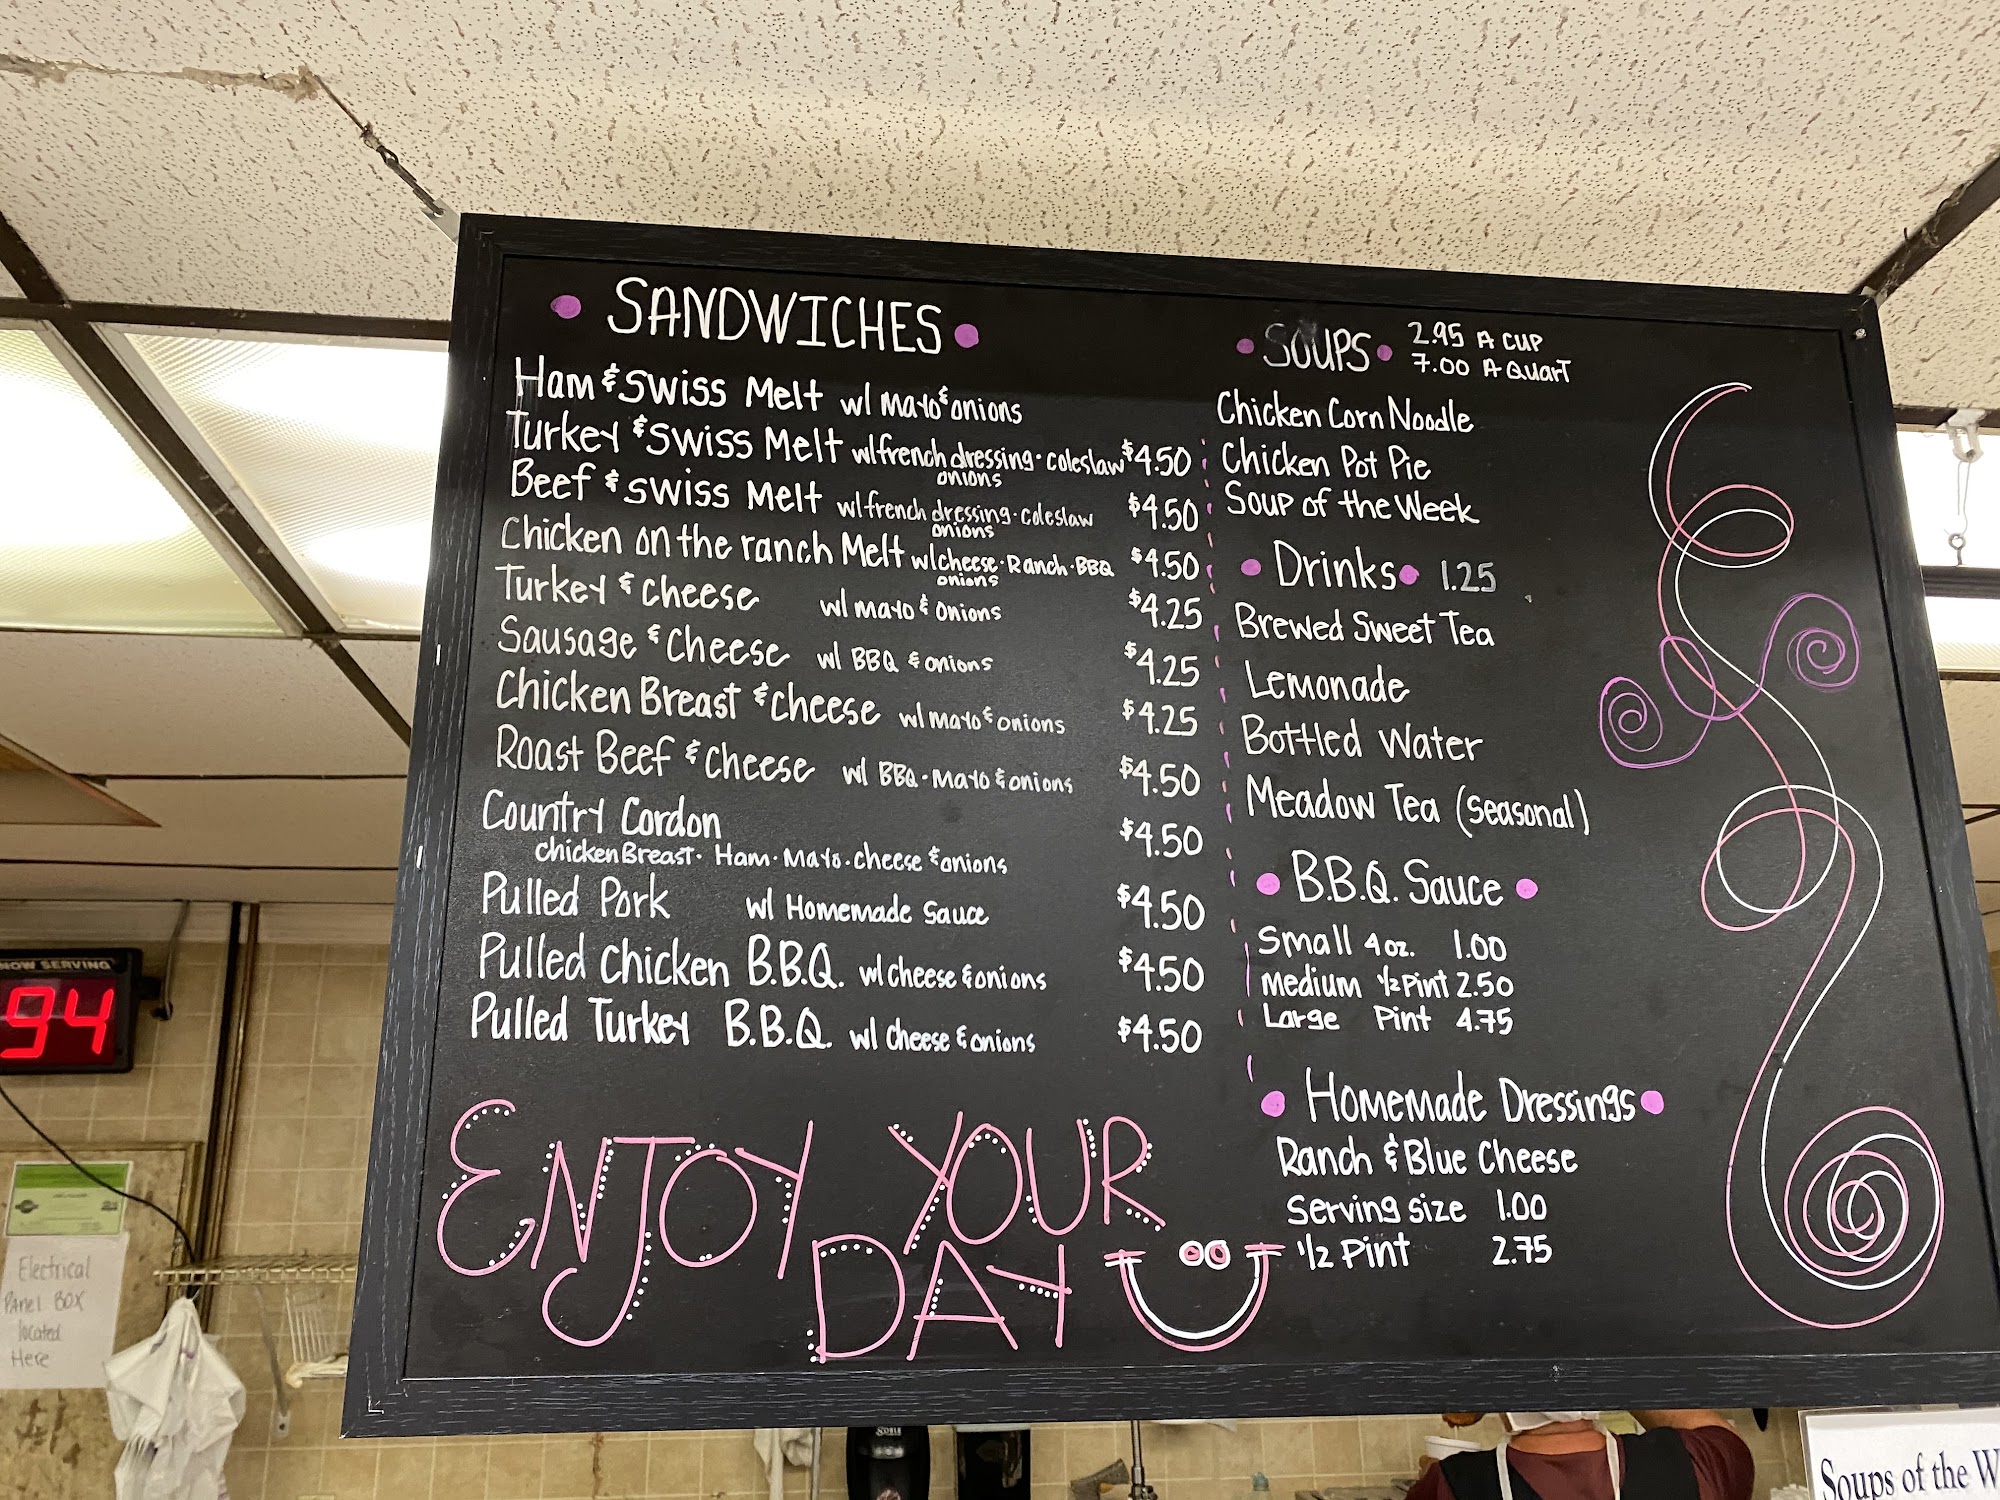 • SANDWICHES •
Ham & Swiss Melt w/ Mayo & onions
Turkey & Swiss Melt w/ french dressing • coleslaw $4.50
onions
Beef & Swiss Melt w/ french dressing • coleslaw $4.50
onions
Chicken on the ranch Melt w/ cheese • Ranch • BBQ $4.50
onions
Turkey & cheese w/ mayo & onions $4.25
Sausage & cheese w/ BBQ & onions $4.25
Chicken Breast & cheese w/ mayo & onions $4.25
Roast Beef & cheese w/ BBQ • Mayo & onions $4.50
Country Cordon $4.50
chicken Breast • Ham • Mayo • cheese & onions
Pulled Pork w/ Homemade Sauce $4.50
Pulled chicken B.B.Q. w/ cheese & onions $4.50
Pulled Turkey B.B.Q. w/ cheese & onions $4.50
ENJOY YOUR
DAY
• SOUPS • 2.95 A CUP
7.00 A QUART
Chicken Corn Noodle
Chicken Pot Pie
Soup of the Week
• Drinks • 1.25
Brewed Sweet Tea
Lemonade
Bottled Water
Meadow Tea (seasonal)
• B.B.Q. Sauce •
Small 4 oz. 1.00
Medium 1/2 Pint 2.50
Large Pint 4.75
• Homemade Dressings •
Ranch & Blue Cheese
Serving size 1.00
1/2 Pint 2.75
NOW SERVING
94
Electrical
Panel BOX
located
Here
Soups of the W